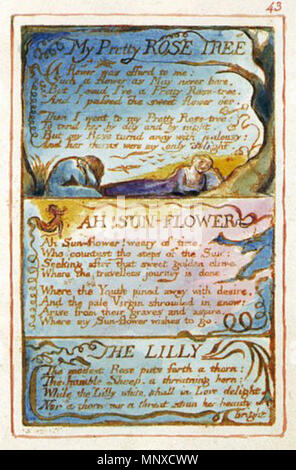 43
My Pretty ROSE TREE
A flower was offerd to me:
Such a flower as May never bore.
But I said I've a Pretty Rose-tree.
And I passed the sweet flower o'er.
Then I went to my Pretty Rose-tree:
To tend her by day and by night.
But my Rose turnd away with jealousy:
And her thorns were my only delight.
AH! SUN-FLOWER
Ah Sun-flower! weary of time,
Who countest the steps of the Sun:
Seeking after that sweet golden clime
Where the travellers journey is done.
Where the Youth pined away with desire,
And the pale Virgin shrouded in snow:
Arise from their graves and aspire,
Where my Sun-flower wishes to go.
THE LILLY
The modest Rose puts forth a thorn:
The humble Sheep, a threatning horn:
While the Lilly white, shall in Love delight,
Nor a thorn nor a threat stain her beauty
bright
alamy
Image ID: MNXCWW
www.alamy.com